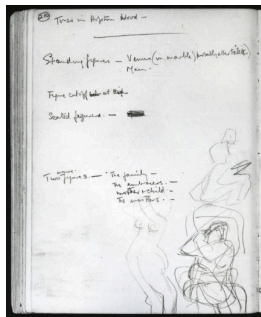 20 Torso in African Wood —
Standing figures — Venus (in marble)
Man.
Figure cut off at
Seated figures. —
Two figures — The family —
The embracers. —
mother & child. —
The wrestlers. —